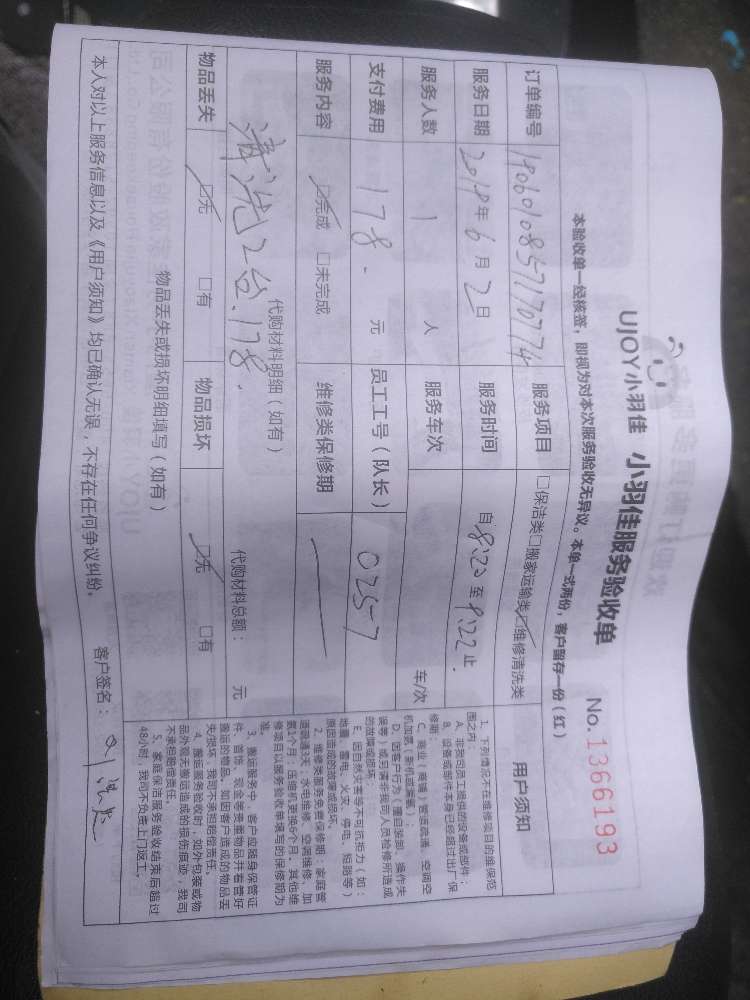 UJOY小羽佳 小羽佳服务验收单 No.1366193
本验收单一经核签，即视为对本次服务验收无异议。本单一式两份，客户留存一份（红）
订单编号 1806010857170774 服务项目 □保洁类□搬家运输类☑维修清洗类
服务日期 2018年6月2日 服务时间 自8:20至9:22止
服务人数 1 人 服务车次 车/次
支付费用 178. 元 员工工号（队长） 0257
服务内容 ☑完成 □未完成 维修类保修期
代购材料明细（如有）
清洗2台.178.
代购材料总额： 元
物品丢失 ☑无 □有 物品损坏 ☑无 □有
物品丢失或损坏明细填写（如有）
本人对以上服务信息以及《用户须知》均已确认无误，不存在任何争议纠纷。 客户签名：
用户须知
1、下列情况不在维修项目的维保范
围之内：
A、非我司员工提供的设备或部件；
B、设备或部件本身已经超过出厂保
修期；
C、商业（商铺）管道疏通、空调空
机加氨（新机组漏氨）；
D、因客户行为（擅自装卸、操作失
误等）或另请非我司人员检修所造成
的故障或损坏；
E、因自然灾害等不可抗拒力（如：
地震、雷电、火灾、停电、短路等）
原因造成的故障或损坏。
2、维修类服务免费保修期：家庭管
道疏通3天；水电维修、空调维修、加
氨1个月；压缩机更换6个月。其他维
修项目以服务验收单填写的保修期为
准。
3、搬运服务中，客户应随身保管证
件、首饰、现金等贵重物品并看管好
搬运的物品。如因客户造成的物品丢
失/损坏，我司不承担赔偿责任。
4、搬运服务验收时，如外包装或物
品外观无搬运造成的损伤痕迹，我司
不承担赔偿责任。
5、家庭保洁服务验收结束后超过
48小时，我司不负责上门返工。